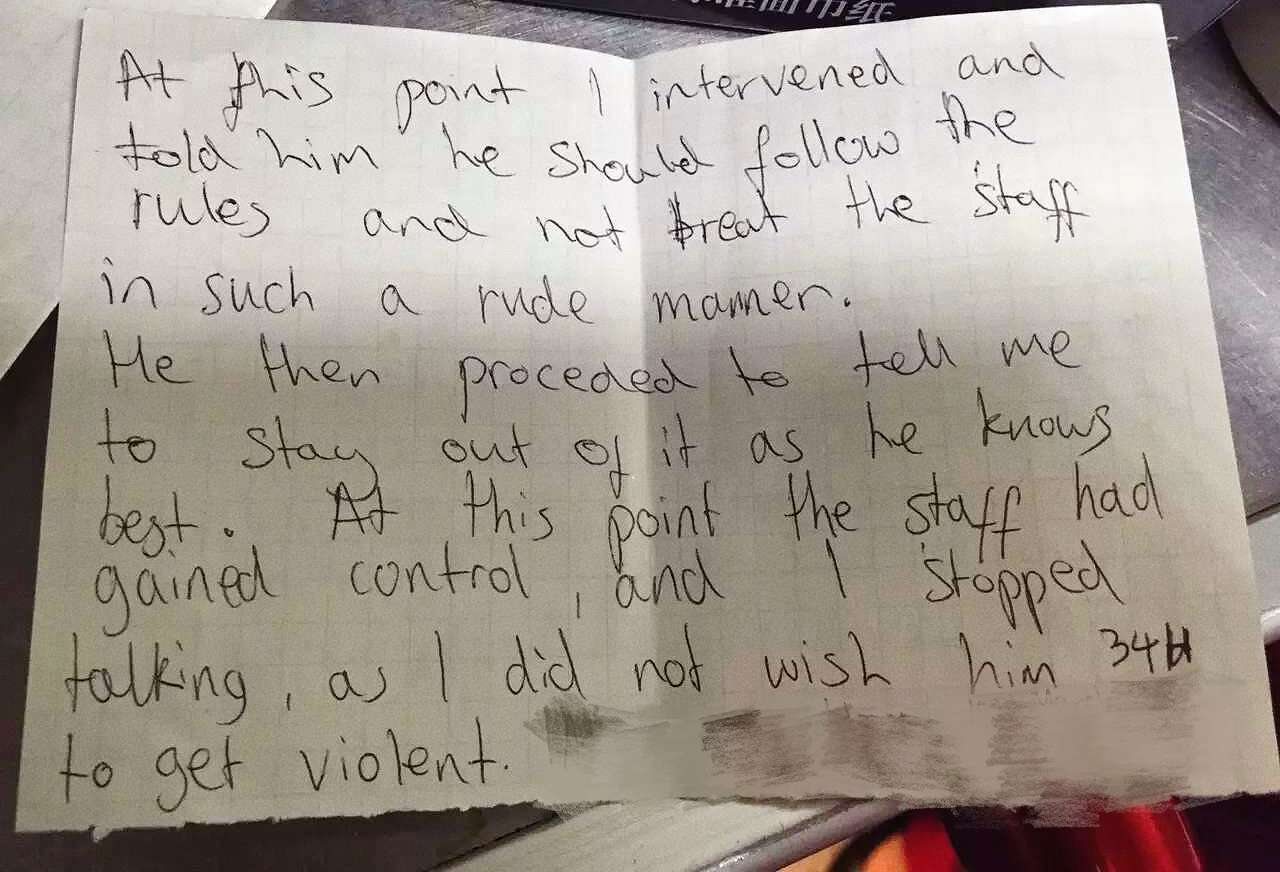 At this point I intervened and
told him he should follow the
rules and not treat the staff
in such a rude manner.
He then proceded to tell me
to stay out of it as he knows
best. At this point the staff had
gained control, and I stopped
talking, as I did not wish him
to get violent.